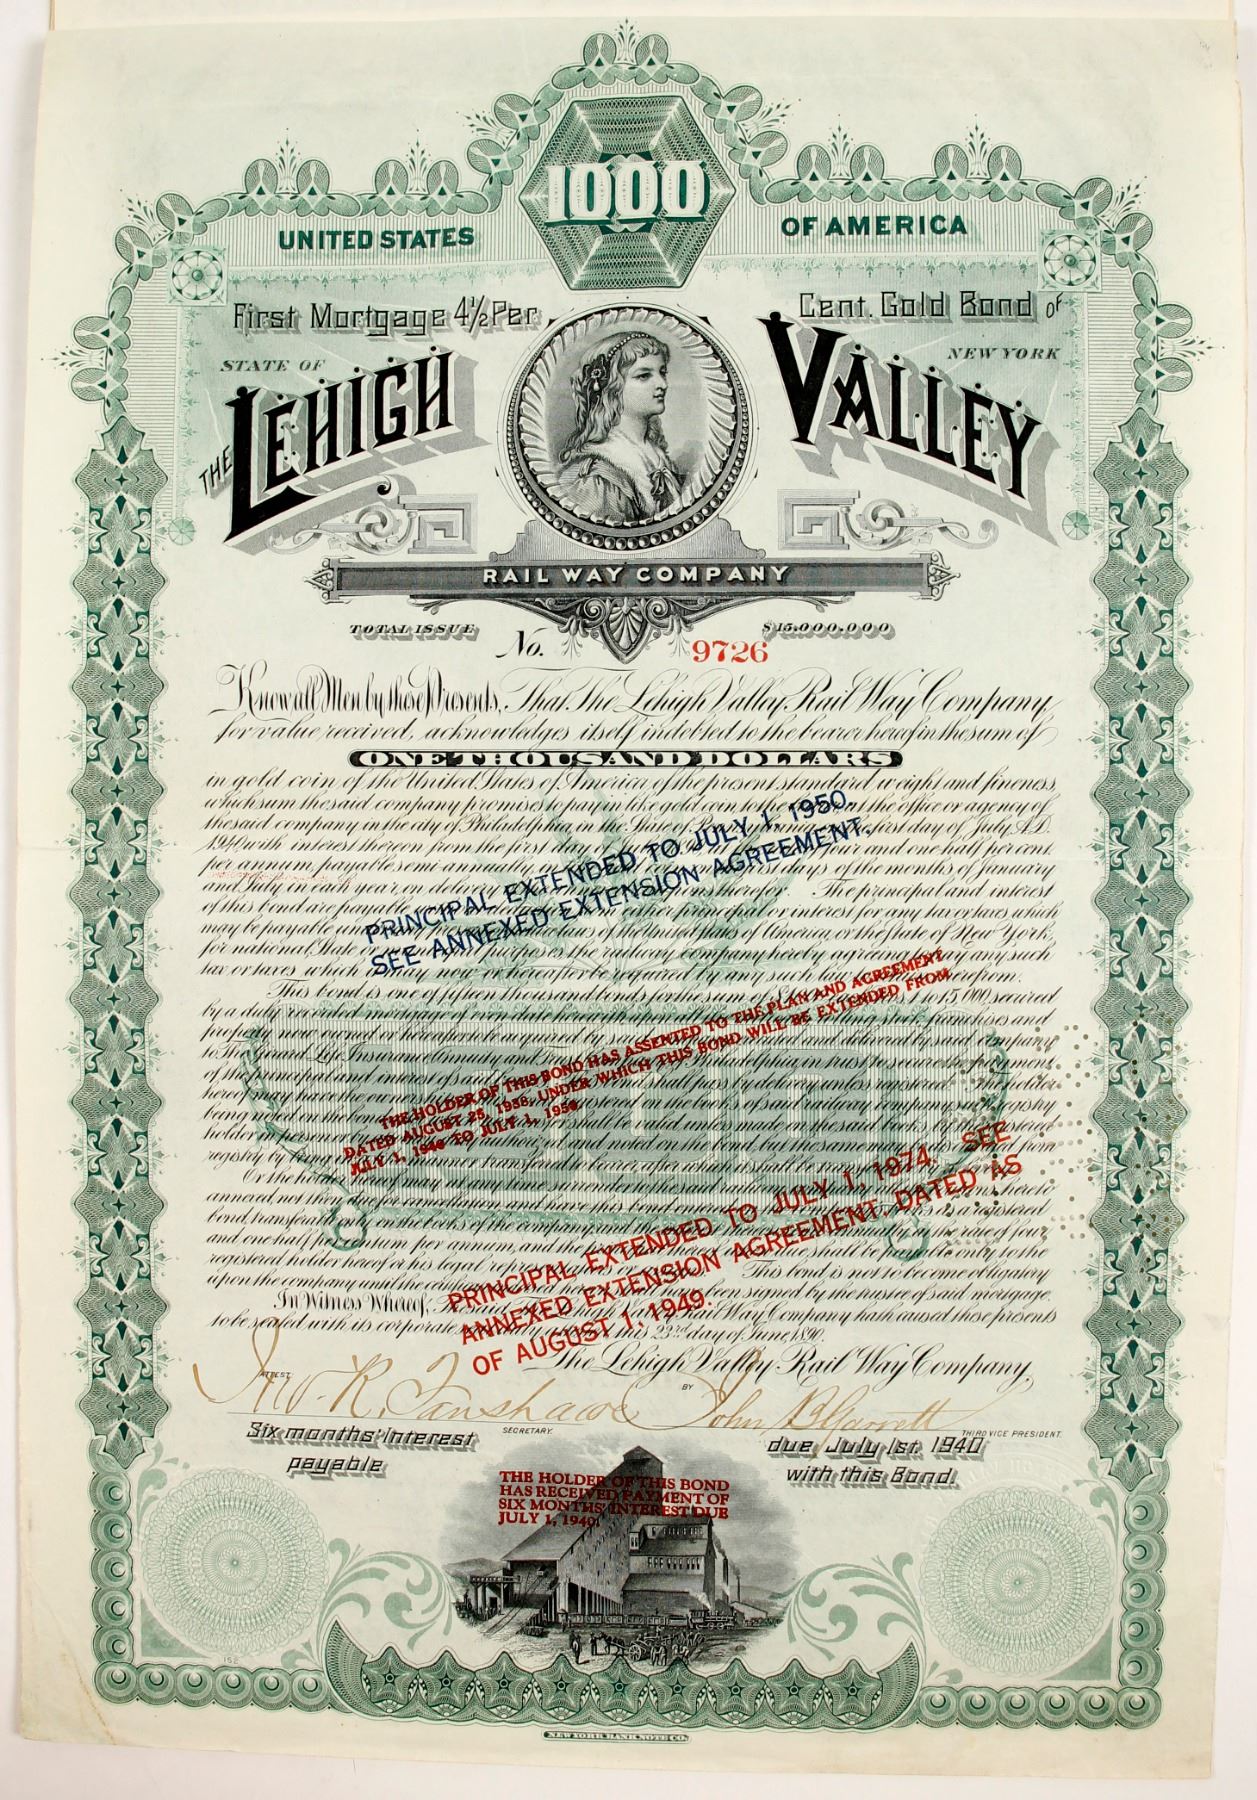 1000
UNITED STATES OF AMERICA
First Mortgage 4½ Per Cent. Gold Bond of
STATE OF NEW YORK
THE LEHIGH VALLEY
RAIL WAY COMPANY
TOTAL ISSUE $15.000.000
No. 9726
Know all Men by these Presents, That The Lehigh Valley Rail Way Company,
for value received, acknowledges itself indebted to the bearer hereof in the sum of
ONE THOUSAND DOLLARS
in gold coin of the United States of America of the present standard weight and fineness,
which sum the said company promises to pay in like gold coin to the at the office or agency of
the said company in the city of Philadelphia, in the State of first day of July A.D.
1940 with interest thereon from the first day of four and one half per cent.
per annum, payable semi annually first days of the months of January
and July in each year, on delivery therefor. The principal and interest
of this bond are payable either principal or interest for any tax or taxes which
may be payable laws of the United States of America, or the State of New York,
for national, State or purposes the railway company hereby agreeing any such
tax or taxes, which may now or hereafter be required by any such law therefrom.
PRINCIPAL EXTENDED TO JULY 1, 1950.
SEE ANNEXED EXTENSION AGREEMENT.
This bond is one of fifteen thousand bonds for the sum of 1 to 15,000, secured
by a duly recorded mortgage of even date herewith upon rolling stock, franchises and
property now owned or hereafter to be acquired by and delivered by said company
to The Girard Life Insurance Annuity and Philadelphia, in trust to secure the payment
of the principal and interest of said shall pass by delivery unless registered. The holder
hereof may have the ownership registered on the books of said railway company, such registry
being noted on the bond shall be valid unless made on the said books by the registered
holder in person and noted on the bond, but the same may
registry by being in manner transferred to bearer, after which
THE HOLDER OF THIS BOND HAS ASSENTED TO THE PLAN AND AGREEMENT
DATED AUGUST 25, 1938, UNDER WHICH THIS BOND WILL BE EXTENDED FROM
JULY 1, 1940 TO JULY 1, 1950.
Or the holder hereof may at any time surrender to the said railway hereto
annexed not then due for cancellation, and have this bond as a registered
bond, transferable only on the books of the company and the at the rate of four
and one half per centum per annum, and the shall be payable only to the
registered holder hereof or his legal representatives This bond is not to become obligatory
upon the company until the certificate been signed by the trustee of said mortgage.
In Witness Whereof, The said, The Lehigh Valley Rail Way Company hath caused these presents
to be sealed with its corporate this 23rd day of June, 1890.
PRINCIPAL EXTENDED TO JULY 1, 1974. SEE
ANNEXED EXTENSION AGREEMENT, DATED AS
OF AUGUST 1, 1949.
The Lehigh Valley Rail Way Company,
ATTEST BY
Jno. R. Fanshawe John B Garrett
SECRETARY. THIRD VICE PRESIDENT.
Six months' Interest due July 1st. 1940
payable with this Bond.
THE HOLDER OF THIS BOND
HAS RECEIVED PAYMENT OF
SIX MONTHS' INTEREST DUE
JULY 1, 1940.
152
NEW YORK BANK NOTE CO.